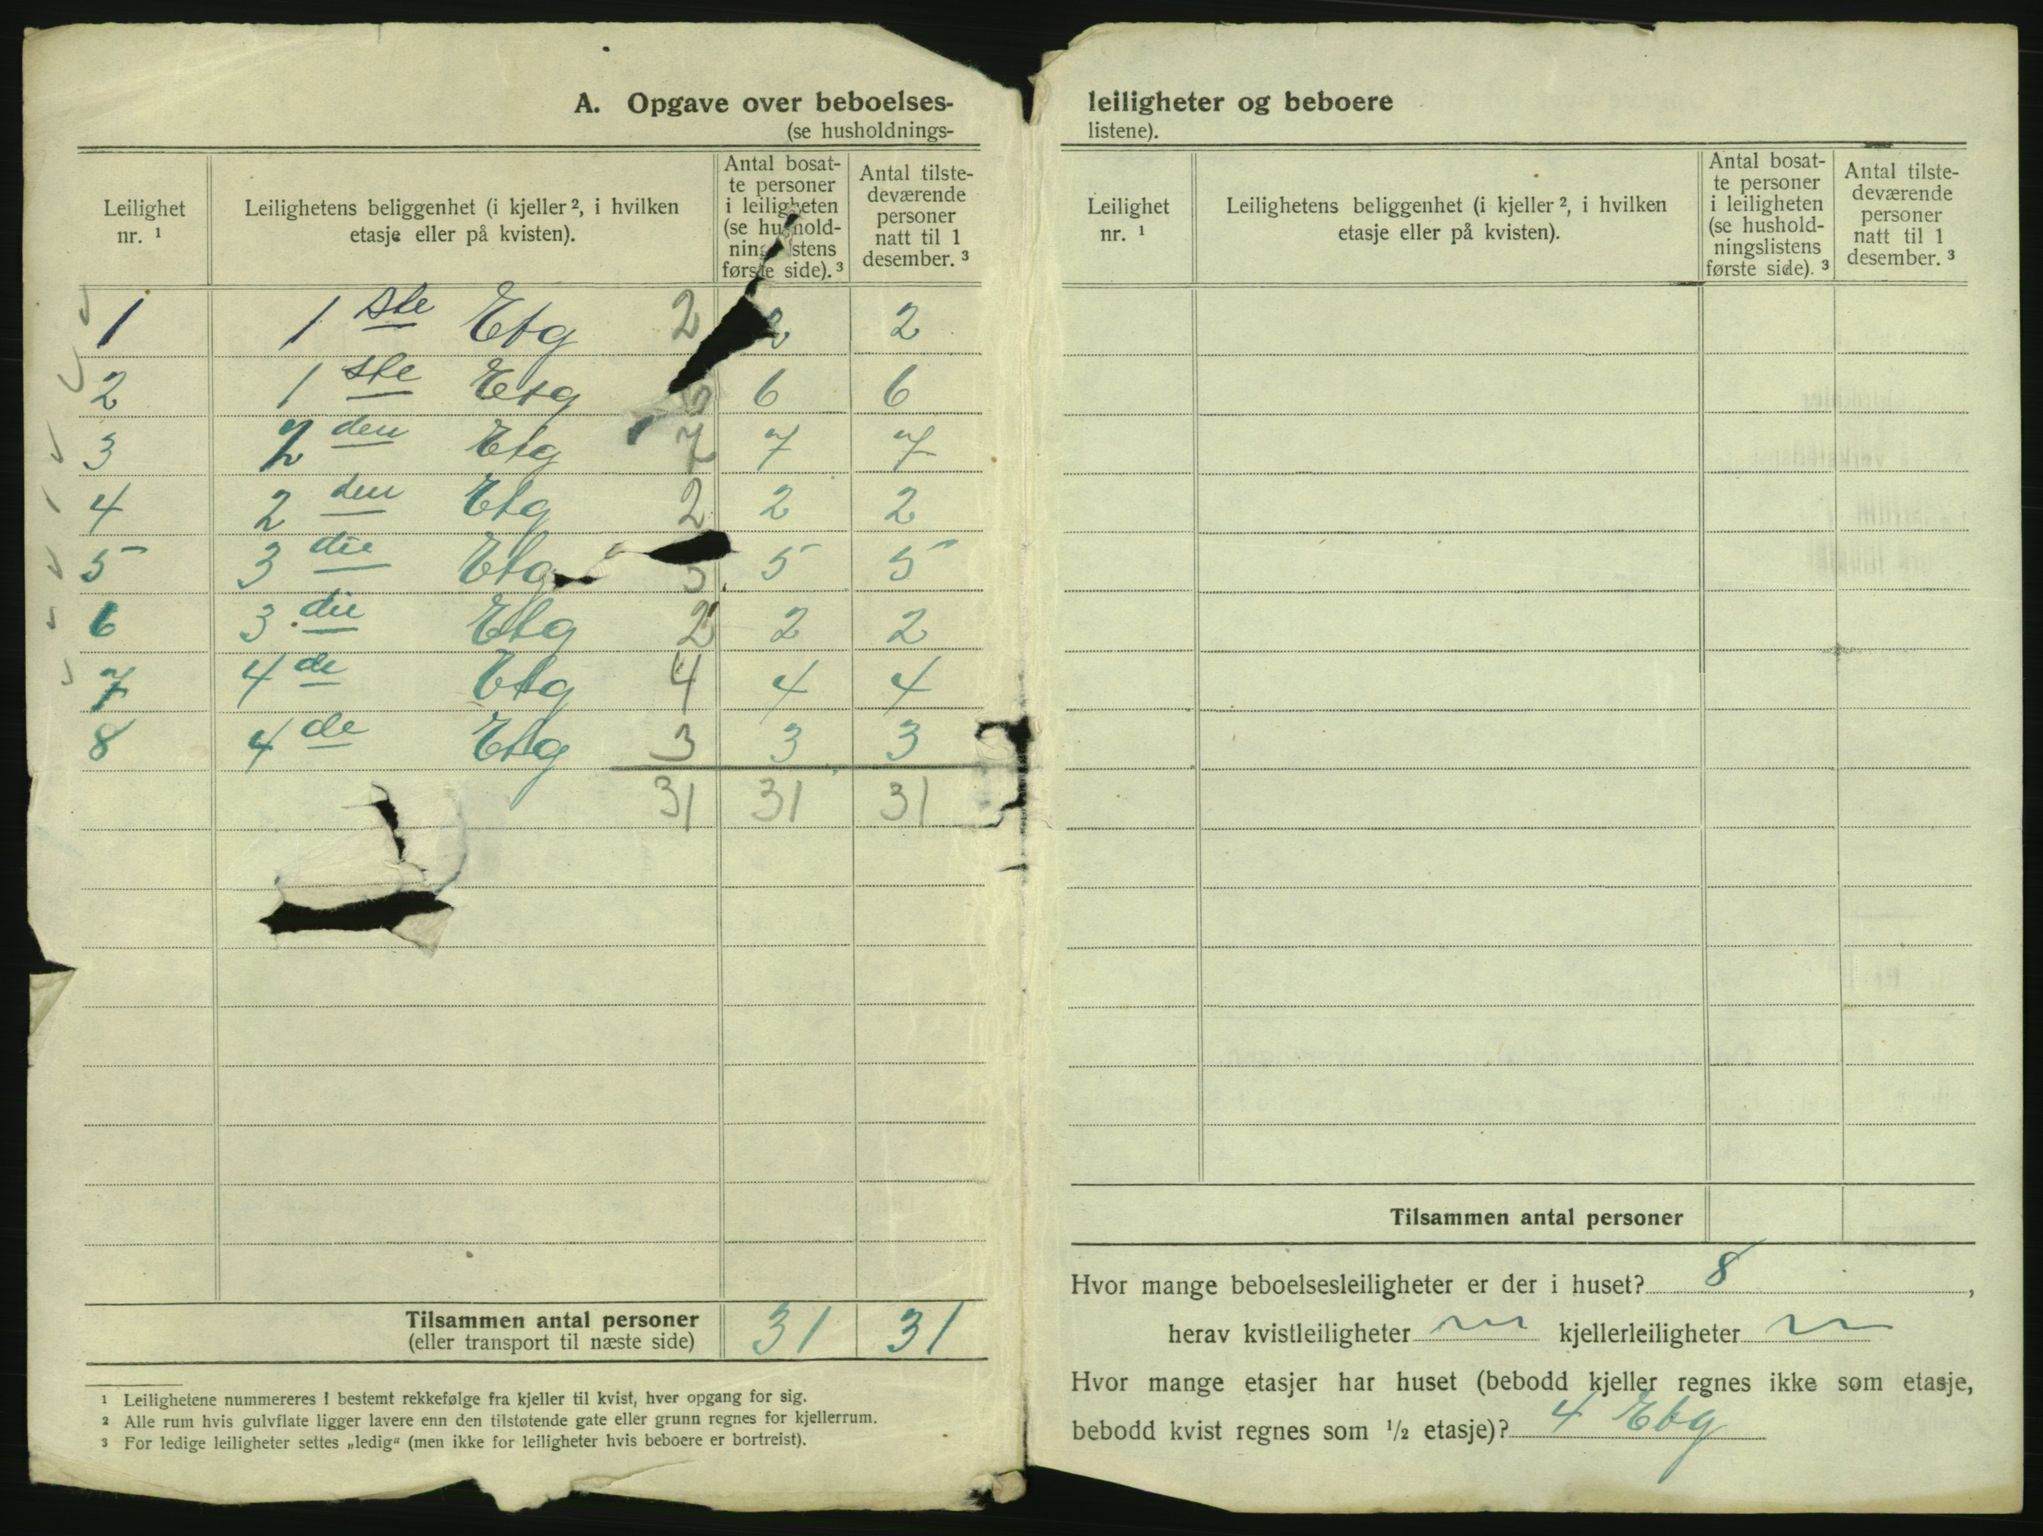 A. Opgave over beboelses-
(se husholdnings-
Leilighet nr. ¹
Leilighetens beliggenhet (i kjeller ², i hvilken etasje eller på kvisten).
Antal bosat-
te personer
i leiligheten
(se hushold-
ningslistens
første side). ³
Antal tilste-
deværende
personer
natt til 1
desember. ³
1 1 ste Etg 2 2 2
2 1 ste Etg 6 6
3 2 den Etg 7 7 7
4 2 den Etg 2 2 2
5 3 die Etg 5 5 5
6 3 die Etg 2 2 2
7 4 de Etg 4 4 4
8 4 de Etg 3 3 3
31 31 31
Tilsammen antal personer 31 31
(eller transport til næste side)
¹ Leilighetene nummereres i bestemt rekkefølge fra kjeller til kvist, hver opgang for sig.
² Alle rum hvis gulvflate ligger lavere enn den tilstøtende gate eller grunn regnes for kjellerrum.
³ For ledige leiligheter settes „ledig“ (men ikke for leiligheter hvis beboere er bortreist).
leiligheter og beboere
listene).
Leilighet nr. ¹
Leilighetens beliggenhet (i kjeller ², i hvilken etasje eller på kvisten).
Antal bosat-
te personer
i leiligheten
(se hushold-
ningslistens
første side). ³
Antal tilste-
deværende
personer
natt til 1
desember. ³
Tilsammen antal personer
Hvor mange beboelsesleiligheter er der i huset? 8,
herav kvistleiligheter kjellerleiligheter
Hvor mange etasjer har huset (bebodd kjeller regnes ikke som etasje,
bebodd kvist regnes som ¹/₂ etasje)? 4 Etg